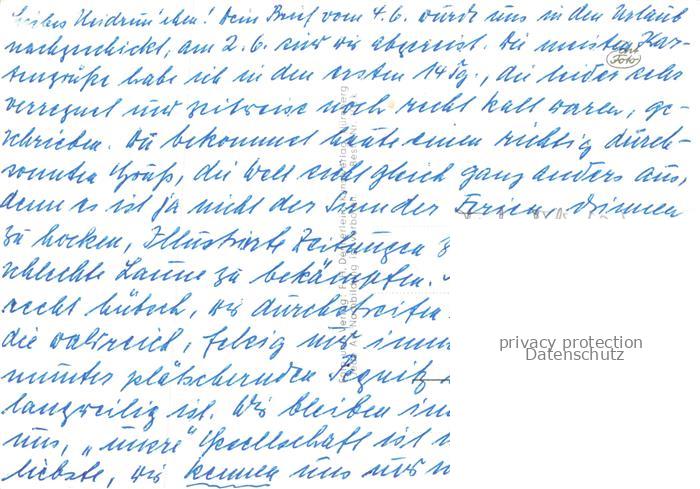 Liebes Heidrun'chen! Dein Brief vom 4.6. wurde uns in den Urlaub
nachgeschickt, am 2.6. sind wir abgereist. Die meisten Kar-
tengrüße habe ich in den ersten 14 Tg., die leider sehr
verregnet und zeitweise noch recht kalt waren, ge-
schrieben. Du bekommst heute einen richtig durch-
sonnten Gruß, die Welt sieht gleich ganz anders aus,
denn es ist ja nicht der Sinn der Ferien, drinnen
zu hocken, Illustrierte Zeitungen
schlechte Laune zu bekämpfen.
recht hübsch, wir durchstreifen
die waldreich, felsig und
munter plätschernden Pegnitz
langweilig ist. Wir bleiben
uns, „unsere" Gesellschaft ist
liebste, wir kennen uns und
Foto
privacy protection
Datenschutz